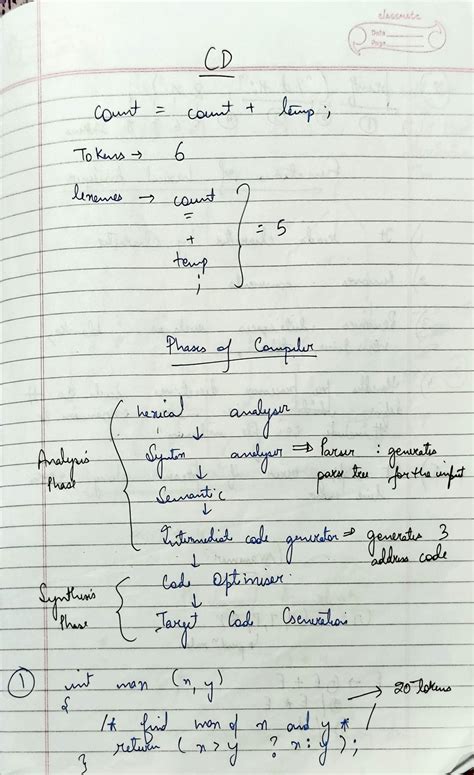 classmate
Date
Page
CD
count = count + temp ;
Tokens → 6
lexemes → count
=
+
temp
;
= 5
Phases of Compiler
Analysis Phase
Lexical analyser
↓
Syntax analyser ⇒ Parser : generates parse tree for the input
↓
Semantic
↓
Intermediate code generator ⇒ generates 3 address code
Synthesis Phase
Code Optimiser
↓
Target Code Generation
① int max (x, y)
{
/* find max of x and y */
return (x > y ? x : y);
}
→ 20 tokens